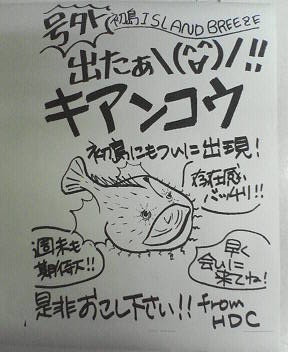 号外 初島ISLAND BREEZE
出たぁ\(^▽^)/!!
キアンコウ
初島にもついに出現!
存在感バッチリ!!
週末も期待大!!
早く会いに来てね!
是非おこし下さい!! from HDC